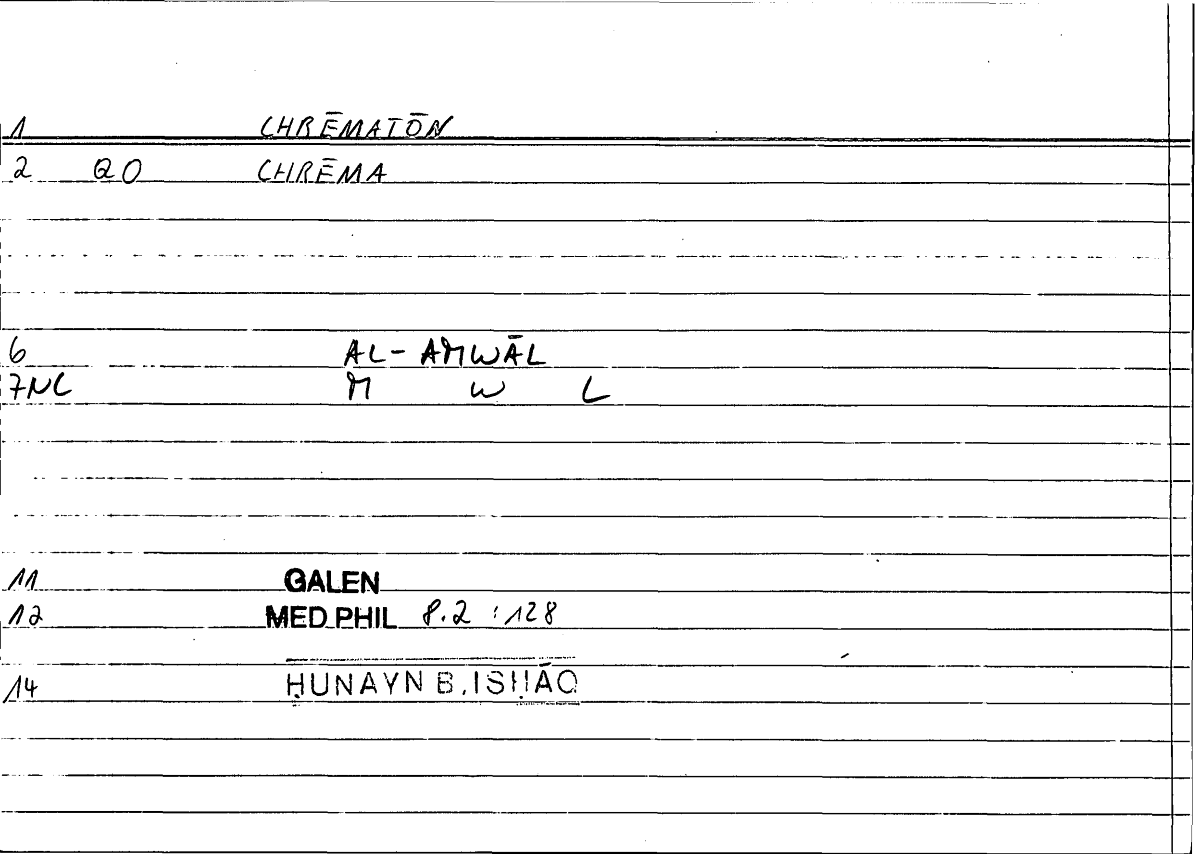 1 CHRĒMATŌN
2 QO CHRĒMA
6 AL-AMWĀL
7NC M W L
11 GALEN
12 MED PHIL 8.2 :128
14 ḤUNAYN B. ISḤĀQ